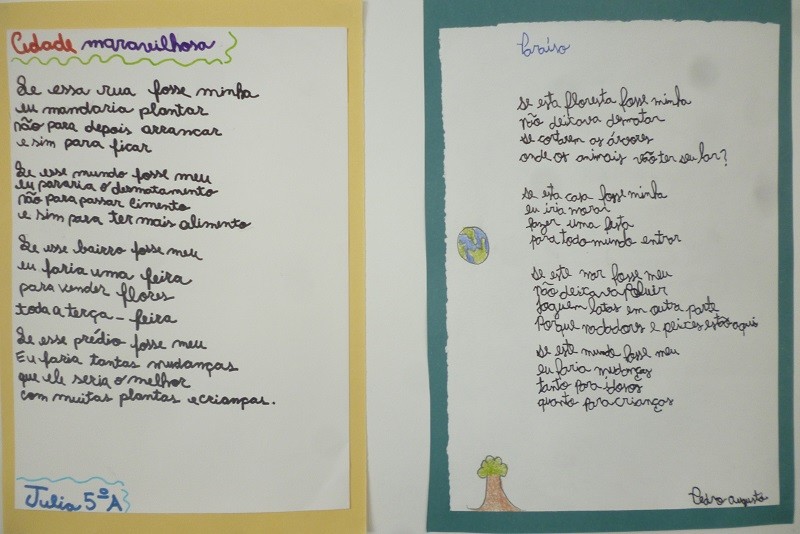 Cidade maravilhosa
Se essa rua fosse minha
eu mandaria plantar
não para depois arrancar
e sim para ficar
Se esse mundo fosse meu
eu pararia o desmatamento
não para passar cimento
e sim para ter mais alimento
Se esse bairro fosse meu
eu faria uma feira
para vender flores
toda a terça-feira
Se esse prédio fosse meu
Eu faria tantas mudanças
que ele seria o melhor
com muitas plantas e crianças.
Julia 5º A
Paraíso
Se esta floresta fosse minha
não deixava desmatar
se cortarem as árvores
onde os animais vão ter seu lar?
Se esta casa fosse minha
eu iria morar
fazer uma festa
para todo mundo entrar
Se este mar fosse meu
não deixava poluir
Joguem latas em outra parte
Porque nadadores e peixes estão aqui
Se este mundo fosse meu
eu faria mudanças
tanto para idosos
quanto para crianças
Pedro Augusto